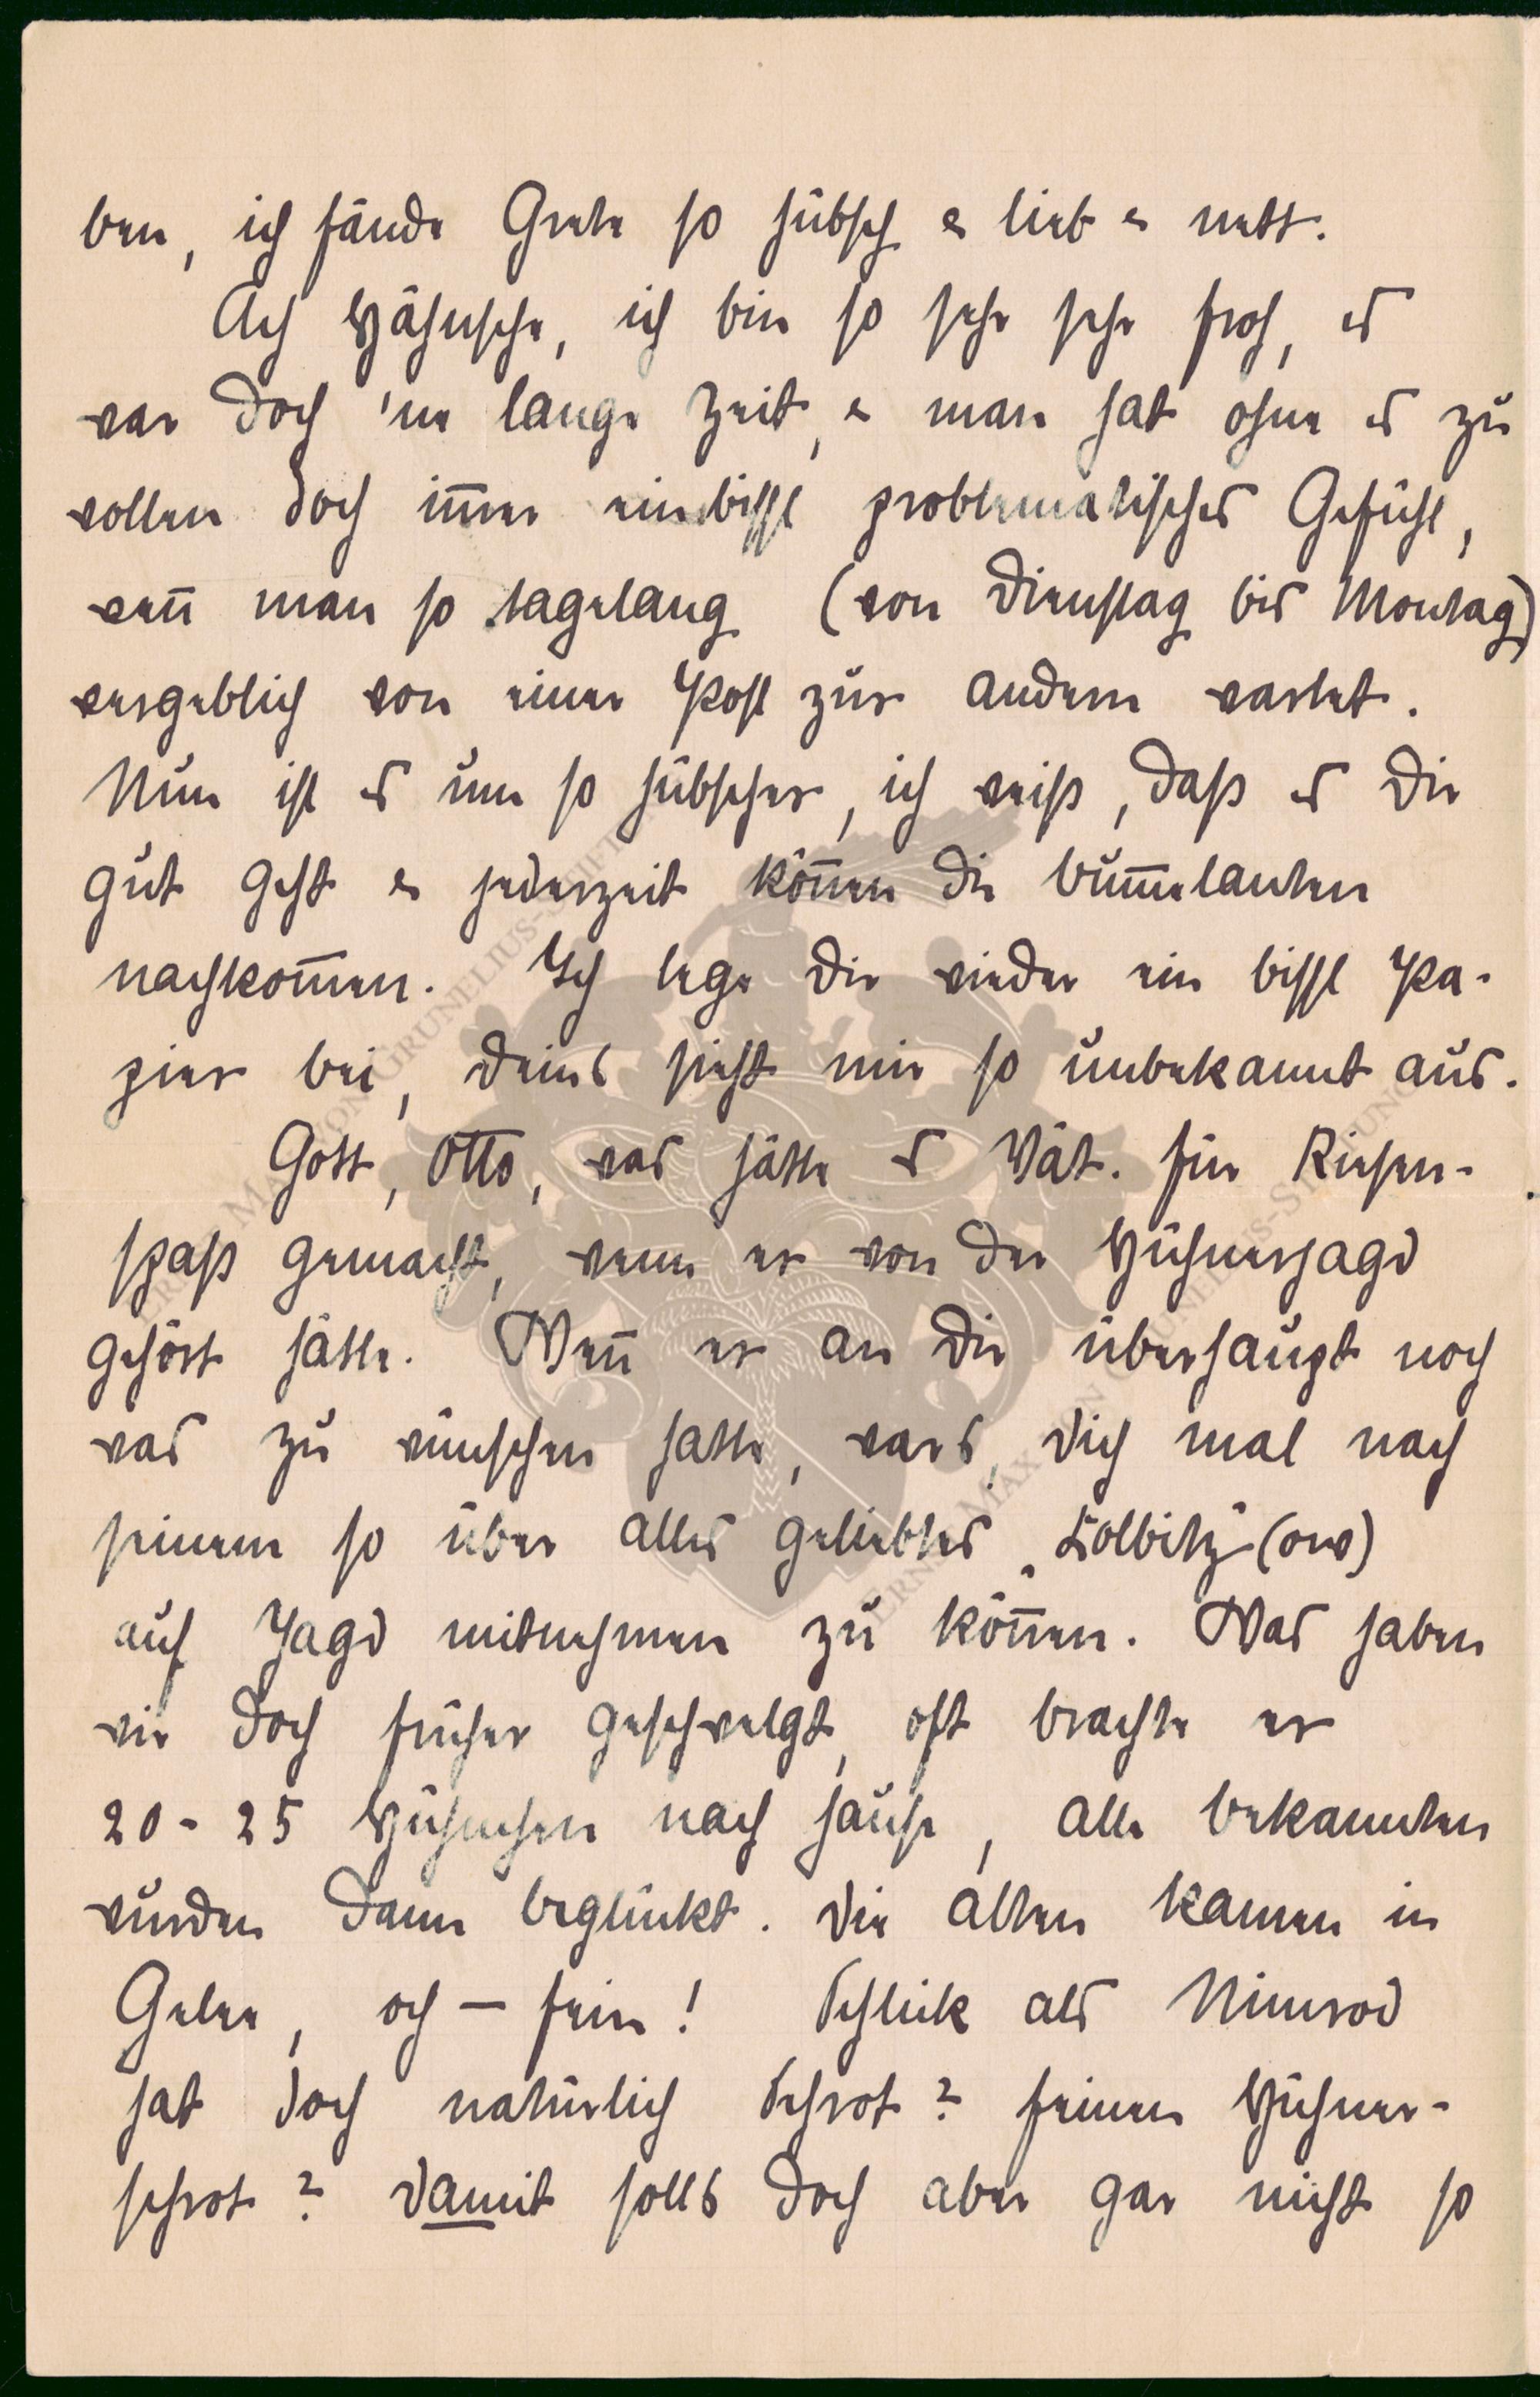 ben, ich fände Grete so hübsch & lieb & nett.
Ach Hähnsche, ich bin so sehr sehr froh, es
war doch 'ne lange Zeit, & man hat ohne es zu
wollen doch im̅er ein bissl problematisches Gefühl,
wen̅ man so tagelang (von Dienstag bis Montag)
vergeblich von einer Post zur andern wartet.
Nun ist es um so hübscher, ich weiß, daß es Dir
gut geht & jederzeit kön̅en die Bum̅elanten
nachkom̅en. Ich lege Dir wieder ein bissl Pa-
pier bei, Deins sieht mir so unbekannt aus.
Gott, Otto, was hätte es Vät. für Riesen-
spaß gemacht, wenn er von der Hühnerjagd
gehört hätte. Wen̅ er an Dir überhaupt noch
was zu wünschen hatte, wars, Dich mal nach
seinem so über alles geliebtes (ow)
auf Jagd mitnehmen zu kön̅en. Was haben
wir doch früher geschwelgt, oft brachte er
20-25 Hühnchen nach Hause, alle Bekannten
wurden dann beglückt. Die Alten kamen in
Gelee, och — fein! Schlick als Nimrod
hat doch natürlich Schrot? feinen Hühner-
schrot? Damit solls doch aber gar nicht so
ERNST MAX VON GRUNELIUS-STIFTUNG
ERNST MAX VON GRUNELIUS-STIFTUNG